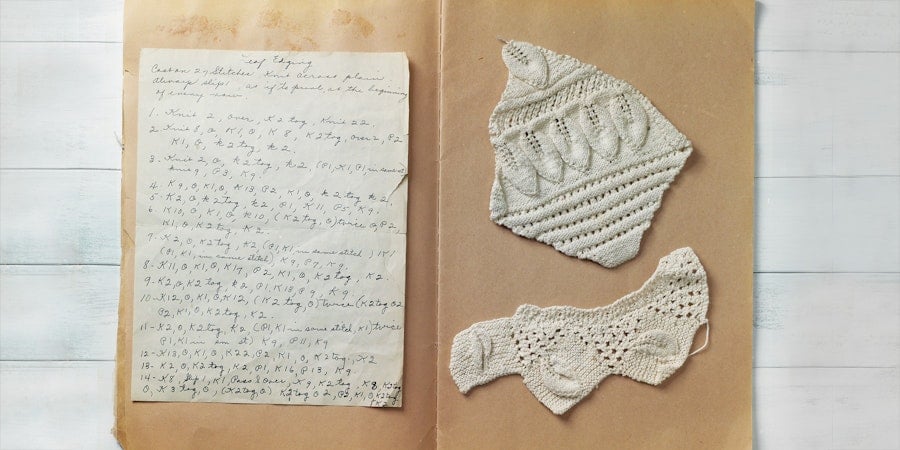 Leaf Edging
Cast on 27 Stitches Knit across plain
Always slip 1, as if to purl, at the beginning
of every row.
1. Knit 2, over, K2 tog, Knit 22.
2. Knit 8, O, K1, O, K8, K2 tog, over 2, P2
K1, O, K2 tog, K2.
3. Knit 2, O, K2 tog, K2, (P1, K1, P1, in same st)
P3, K9.
4. K9, O, K1, O, K13, P2, K1, O, K2 tog K2.
5. K2, O, K2 tog, K2, P1, K11, P5, K9.
6. K10, O, K1, O, K10, (K2 tog, O) twice O, P2,
K1, O, K2 tog, K2.
7. K2, O, K2 tog, K2, (P1, K1 in same stitch) K1
(P1, K1, in same stitch) K9, P7, K9.
8. K11, O, K1, O, K17, P2, K1, O, K2 tog, K2.
9. K2, O, K2 tog, K2, P1, K13, P9, K9.
10. K12, O, K1, O, K12, (K2 tog, O) twice (K2 tog O2
P2, K1, O, K2 tog, K2.
11. K2, O, K2 tog, K2, (P1, K1 in same stitch, K1) twice
P1, K1 in st) K9, P11, K9
12. K13, O, K1, O, K22, P2, K1, O, K2 tog, K2
13. K2, O, K2 tog, K2, P1, K16, P13, K9.
14. K8, Slip 1, K1, Pass S over, K9, K2 tog, K8, K2 tog
O, K3 tog, O, (K2 tog, O) K2 tog O2, P2, K1, O, K2 tog
K2